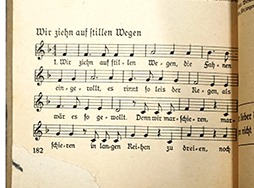 Wir ziehn auf stillen Wegen
1. Wir ziehn auf stil- len We- gen, die Fah- nen
ein- ge- wollt, es rinnt so leis der Re- gen, als
wär es so ge- wollt. Denn wir mar- schie- ren, mar-
182 schie- ren in langen Rei- hen zu drei- en, noch
lieber
nicht